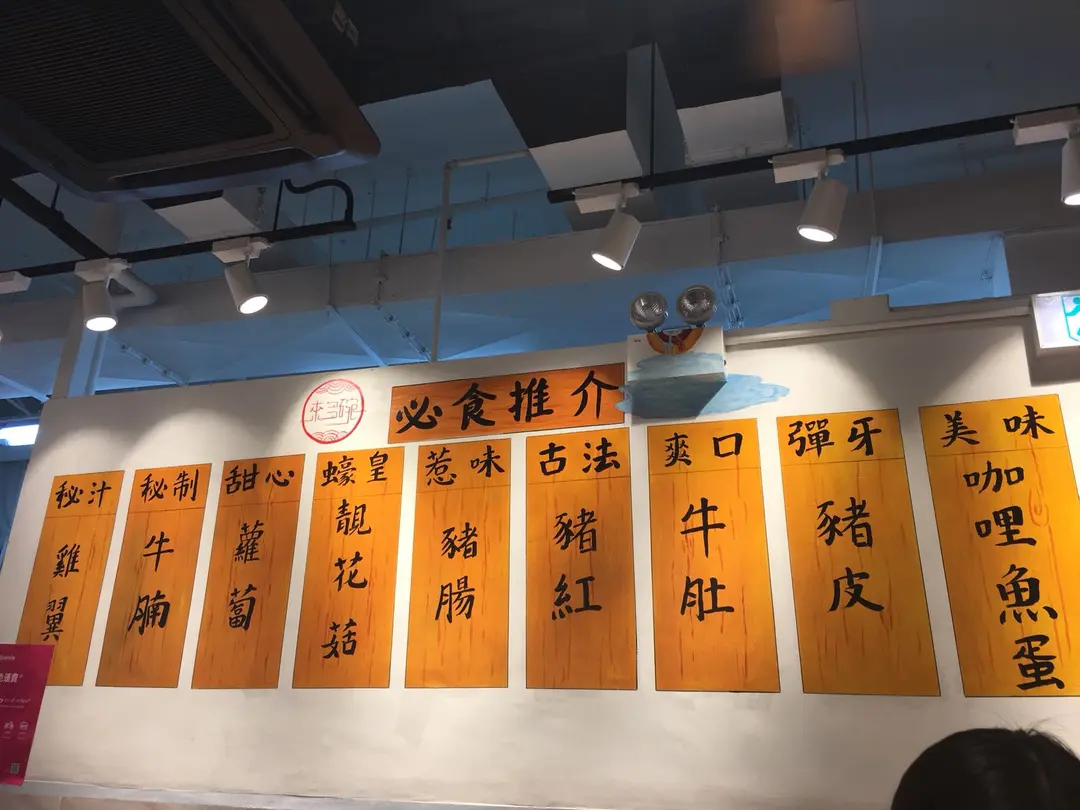 來多碗
必食推介
秘汁
雞翼
秘制
牛腩
甜心
蘿蔔
蠔皇
靚花菇
惹味
豬腸
古法
豬紅
爽口
牛肚
彈牙
豬皮
美味
咖哩魚蛋